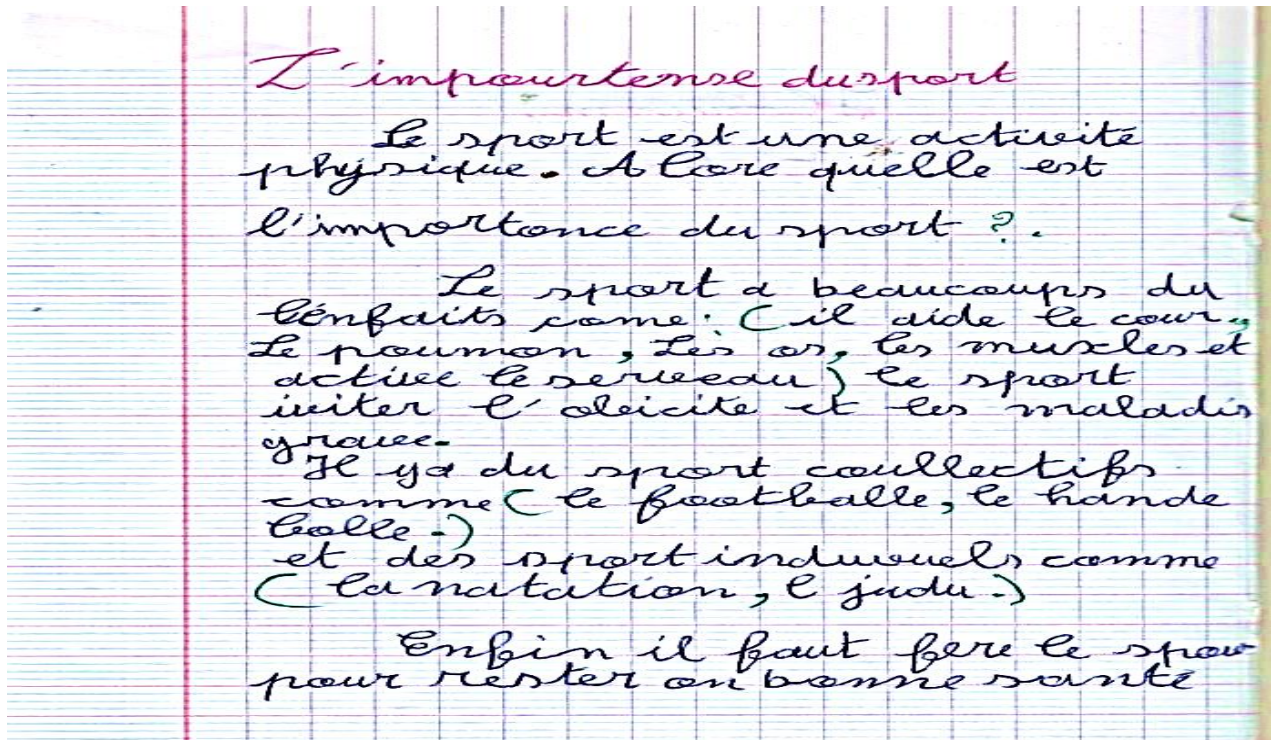 L'impourtense du sport
Le sport est une activité
physique. A lore quelle est
l'importance du sport ?.
Le sport a beaucoups du
bénfaits come : ( il aide le cour,
Le poumon, Les os, les muscles et
activee le serveeau ) le sport
iviter l'obicité et les maladis
gravee.
Il ya du sport coullectifs
comme ( le footballe, le hande
balle.)
et des sport induvuels comme
( la natation, l judu.)
Enfin il faut fere le spor
pour rester on bonne santé